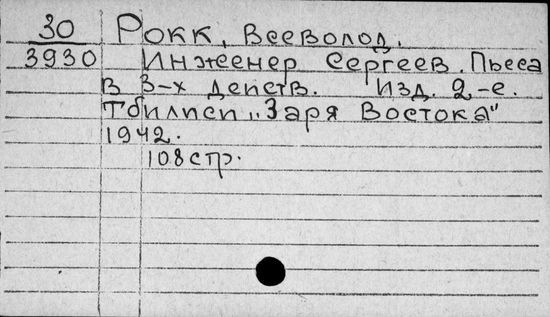 30 Рокк, Всеволод.
3930 Инженер Сергеев. Пьеса
в 3-х действ. Изд. 2-е.
Тбилиси „Заря Востока"
1942.
108 стр.